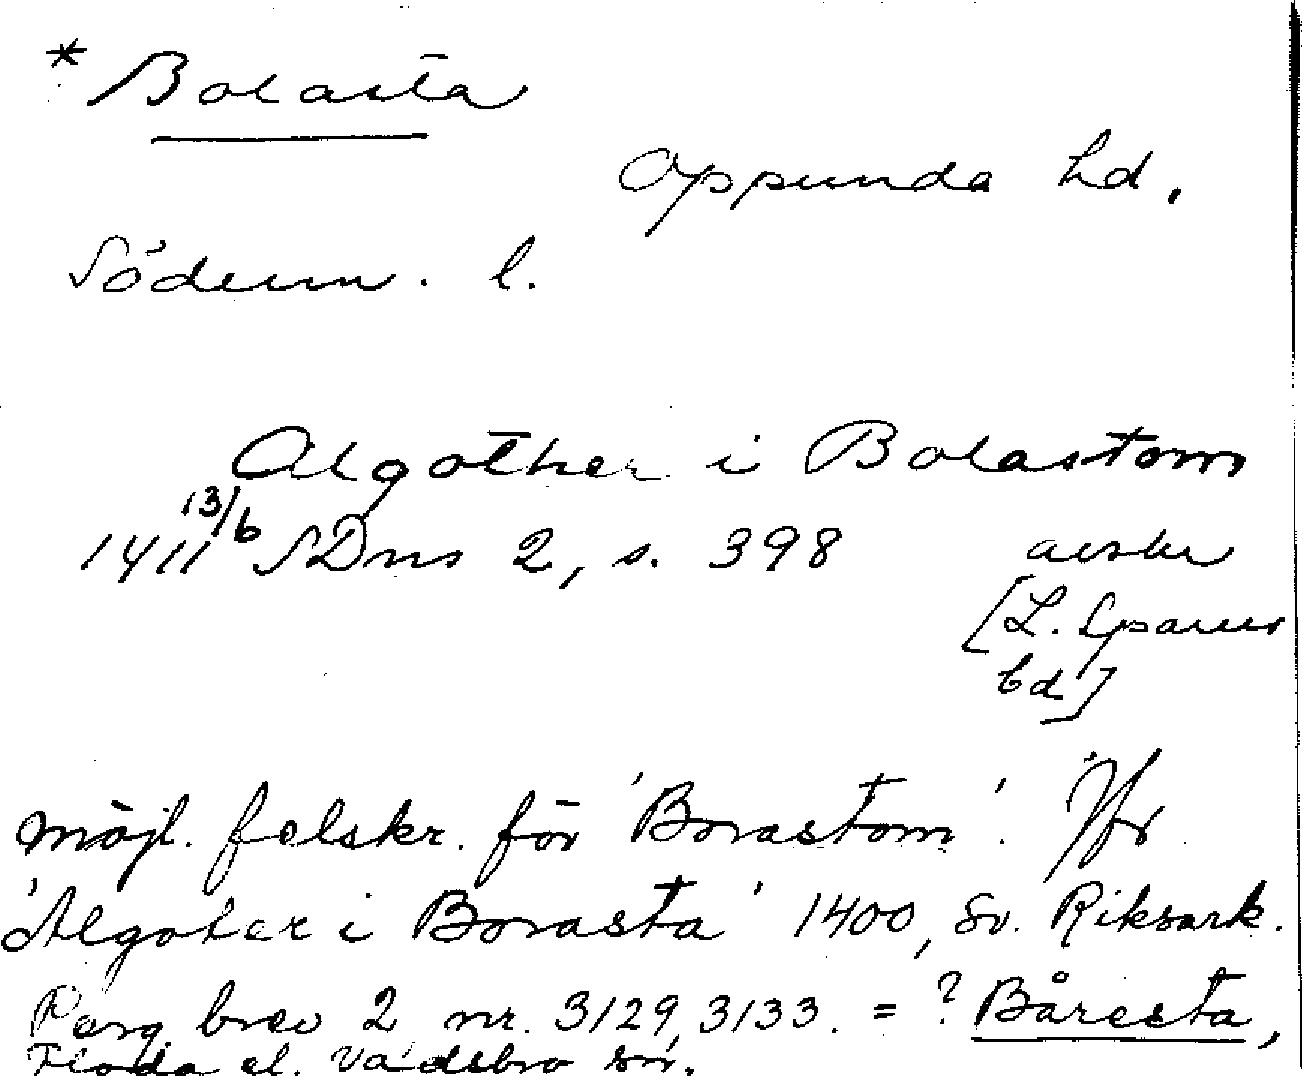 * Bolasta
Oppunda hd.
Söderm. l.
Algother i Bolastom
1411 13/6 SDns 2, s. 398 avskr
[L. Sparres
bd]
möjl. felskr. för 'Borastom'. Jfr
'Algoter i Borasta' 1400, Sv. Riksark.
Perg. brev 2 nr. 3129, 3133. = ? Båresta,
Floda el. Vadsbro sn.